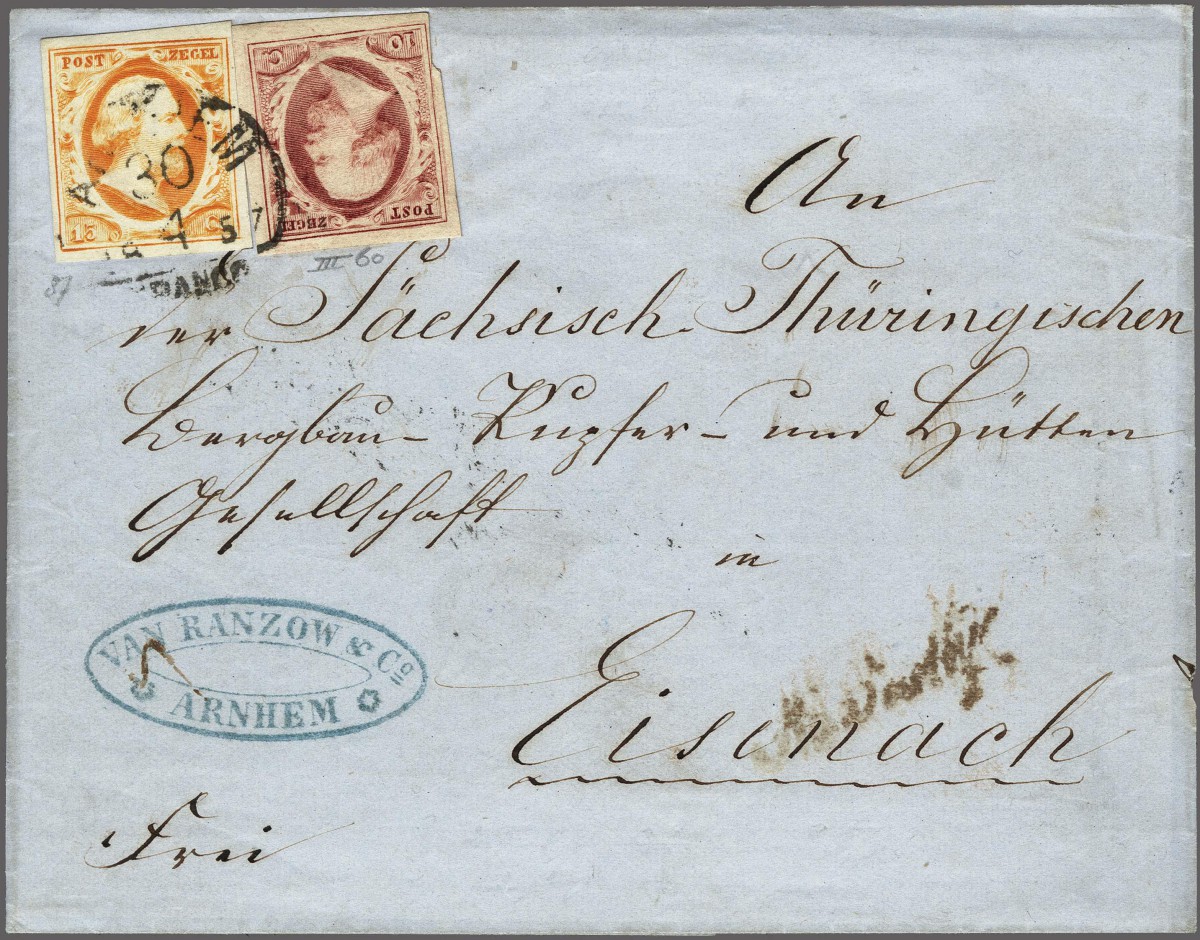 POST ZEGEL
15 C
10 C
POST ZEGEL
ARNHEM
30
FRANCO
87
III 60
An
der Sächsisch-Thüringischen
Bergbau- Kupfer- und Hütten
Gesellschaft
in
Eisenach
VAN RANZOW & Co
ARNHEM
Frei